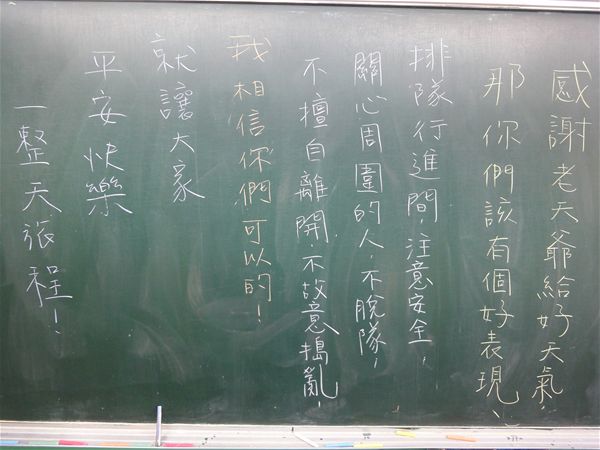 感謝老天爺給好天氣，
那你們該有個好表現，
排隊行進間，注意安全，
關心周圍的人，不脫隊，
不擅自離開，不故意搗亂，
我相信你們可以的！
就讓大家
平安快樂
一整天張程！